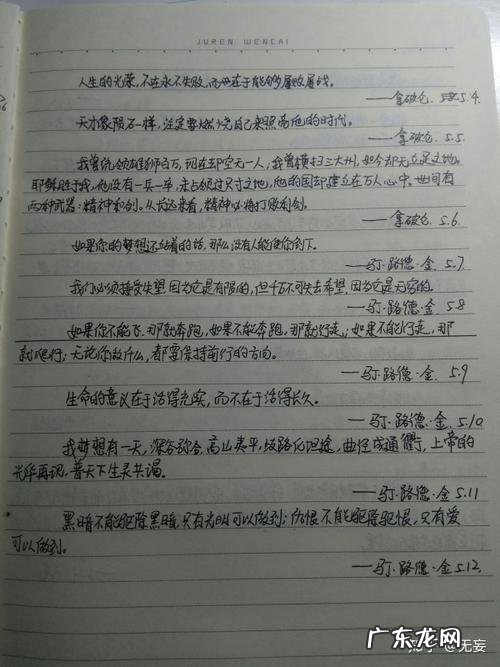 JUREN WENCAI
人生的光荣，不在永不失败，而在于能够屡败屡战。
——拿破仑. 5.4.
天才像陨石一样，注定要燃烧自己来照亮他的时代。
——拿破仑. 5.5.
我曾统领雄狮百万，现在却空无一人，我曾横扫三大州，如今却无立足之地。
耶稣胜于我，他没有一兵一卒，未占领过尺寸之地，他的国却建立在万人心中。世间有
两种武器：精神和剑。从长远来看，精神必将打败利剑。
——拿破仑. 5.6
如果你的梦想还站着的话，那么没有人能使你倒下。
——马丁·路德·金. 5.7.
我们必须接受失望，因为它是有限的，但千万不可失去希望，因为它是无穷的。
——马丁·路德·金. 5.8
如果你不能飞，那就奔跑，如果不能奔跑，那就行走；如果不能行走，那
就爬行；无论你做什么，都要保持前行的方向。
——马丁·路德·金. 5.9
生命的意义在于活得充实，而不在于活得长久。
——马丁·路德·金. 5.10
我梦想有一天，深谷弥合，高山夷平，歧路化坦途，曲径成通衢，上帝的
光华再现，普天下生灵共谒。
——马丁·路德·金 5.11
黑暗不能驱除黑暗，只有光明可以做到；仇恨不能驱除仇恨，只有爱
可以做到。
——马丁·路德·金 5.12.
知乎 @无妄
广东龙网